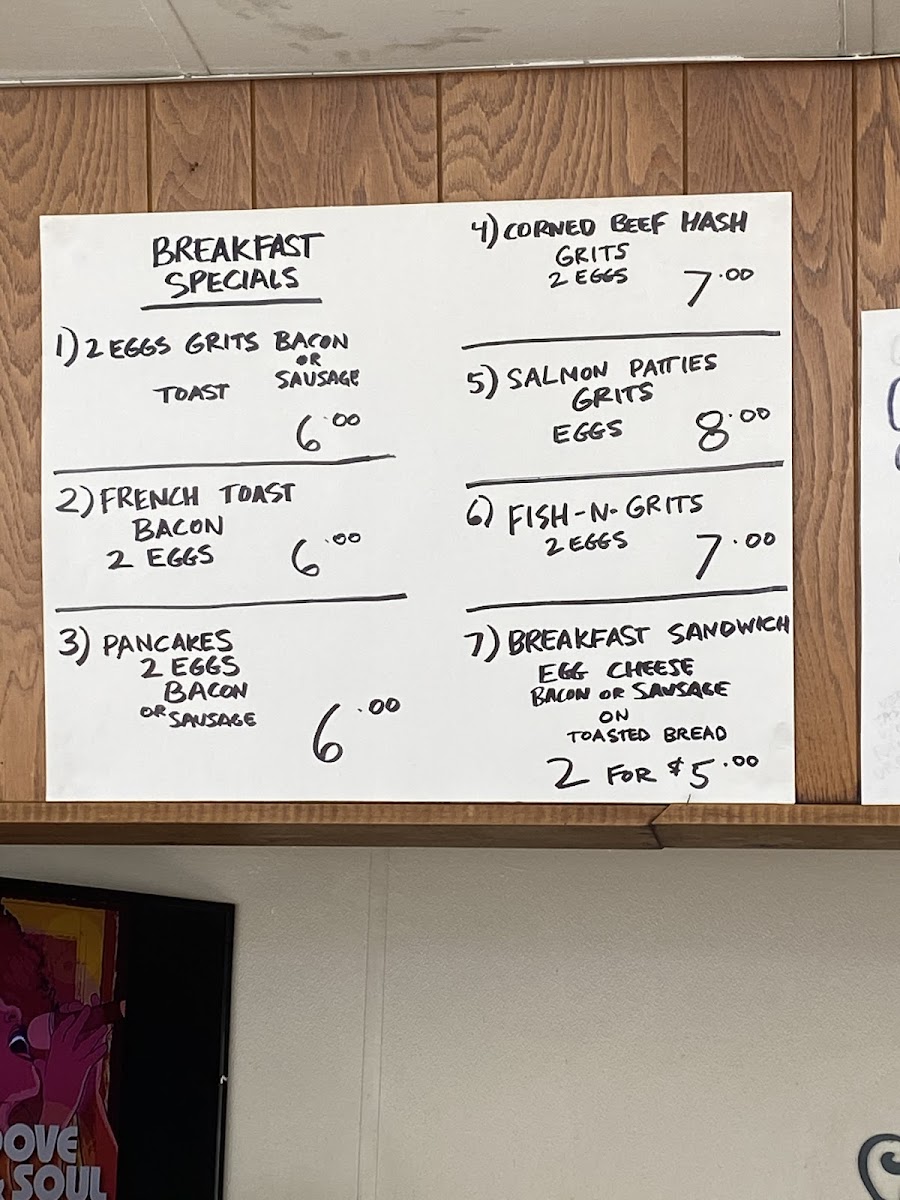 BREAKFAST
SPECIALS
1) 2 EGGS GRITS BACON
OR
TOAST SAUSAGE
6.00
2) FRENCH TOAST
BACON
2 EGGS 6.00
3) PANCAKES
2 EGGS
BACON
OR SAUSAGE
6.00
4) CORNED BEEF HASH
GRITS
2 EGGS 7.00
5) SALMON PATTIES
GRITS
EGGS 8.00
6) FISH-N-GRITS
2 EGGS 7.00
7) BREAKFAST SANDWICH
EGG CHEESE
BACON OR SAUSAGE
ON
TOASTED BREAD
2 FOR $5.00
SOUL